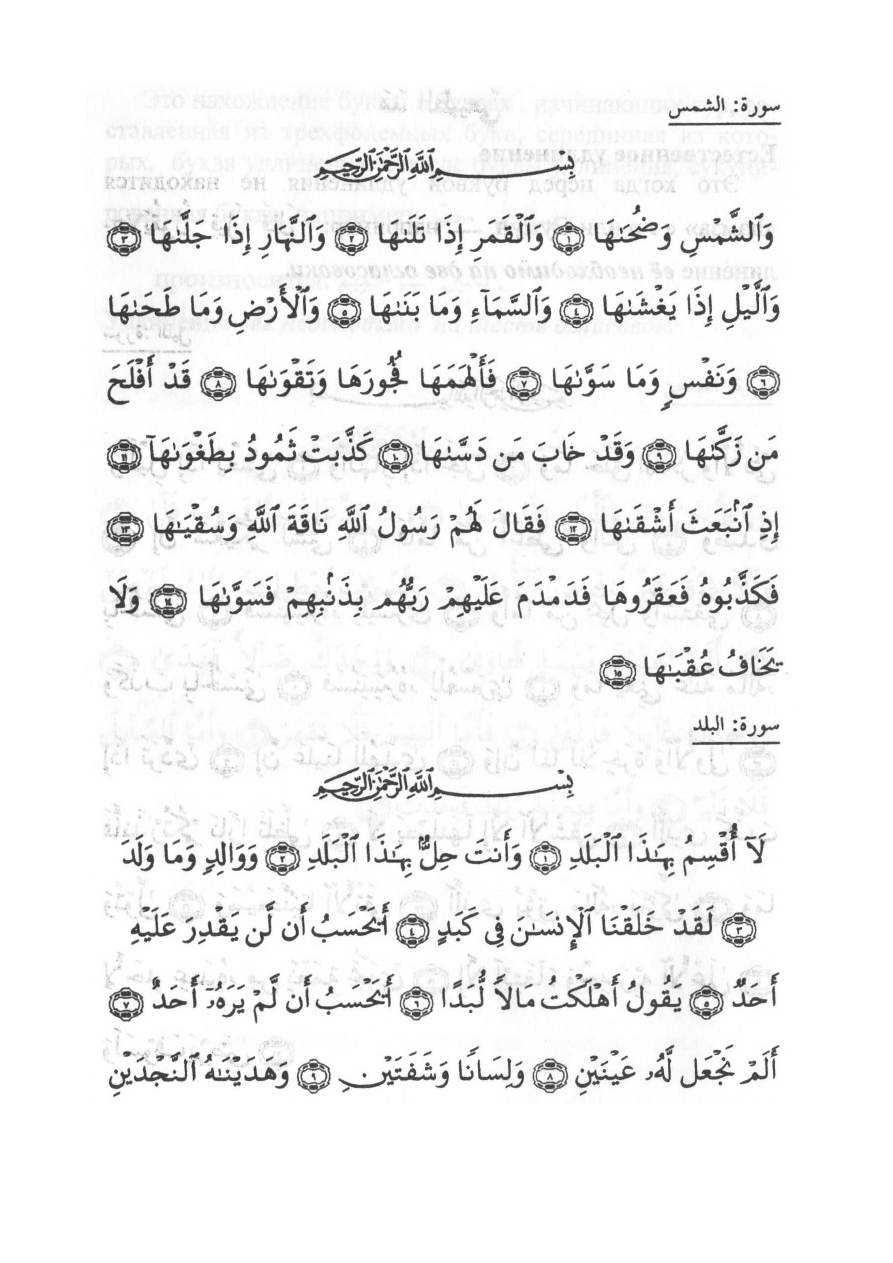 سورة: الشمس
بِسْمِ ٱللَّهِ ٱلرَّحْمَٰنِ ٱلرَّحِيمِ
وَٱلشَّمْسِ وَضُحَىٰهَا ١ وَٱلْقَمَرِ إِذَا تَلَىٰهَا ٢ وَٱلنَّهَارِ إِذَا جَلَّىٰهَا ٣
وَٱلَّيْلِ إِذَا يَغْشَىٰهَا ٤ وَٱلسَّمَآءِ وَمَا بَنَىٰهَا ٥ وَٱلْأَرْضِ وَمَا طَحَىٰهَا
٦ وَنَفْسٍ وَمَا سَوَّىٰهَا ٧ فَأَلْهَمَهَا فُجُورَهَا وَتَقْوَىٰهَا ٨ قَدْ أَفْلَحَ
مَن زَكَّىٰهَا ٩ وَقَدْ خَابَ مَن دَسَّىٰهَا ١٠ كَذَّبَتْ ثَمُودُ بِطَغْوَىٰهَآ ١١
إِذِ ٱنۢبَعَثَ أَشْقَىٰهَا ١٢ فَقَالَ لَهُمْ رَسُولُ ٱللَّهِ نَاقَةَ ٱللَّهِ وَسُقْيَٰهَا ١٣
فَكَذَّبُوهُ فَعَقَرُوهَا فَدَمْدَمَ عَلَيْهِمْ رَبُّهُم بِذَنۢبِهِمْ فَسَوَّىٰهَا ١٤ وَلَا
يَخَافُ عُقْبَٰهَا ١٥
سورة: البلد
بِسْمِ ٱللَّهِ ٱلرَّحْمَٰنِ ٱلرَّحِيمِ
لَآ أُقْسِمُ بِهَٰذَا ٱلْبَلَدِ ١ وَأَنتَ حِلٌّۢ بِهَٰذَا ٱلْبَلَدِ ٢ وَوَالِدٍ وَمَا وَلَدَ
٣ لَقَدْ خَلَقْنَا ٱلْإِنسَٰنَ فِى كَبَدٍ ٤ أَيَحْسَبُ أَن لَّن يَقْدِرَ عَلَيْهِ
أَحَدٌ ٥ يَقُولُ أَهْلَكْتُ مَالًا لُّبَدًا ٦ أَيَحْسَبُ أَن لَّمْ يَرَهُۥٓ أَحَدٌ ٧
أَلَمْ نَجْعَل لَّهُۥ عَيْنَيْنِ ٨ وَلِسَانًا وَشَفَتَيْنِ ٩ وَهَدَيْنَٰهُ ٱلنَّجْدَيْنِ